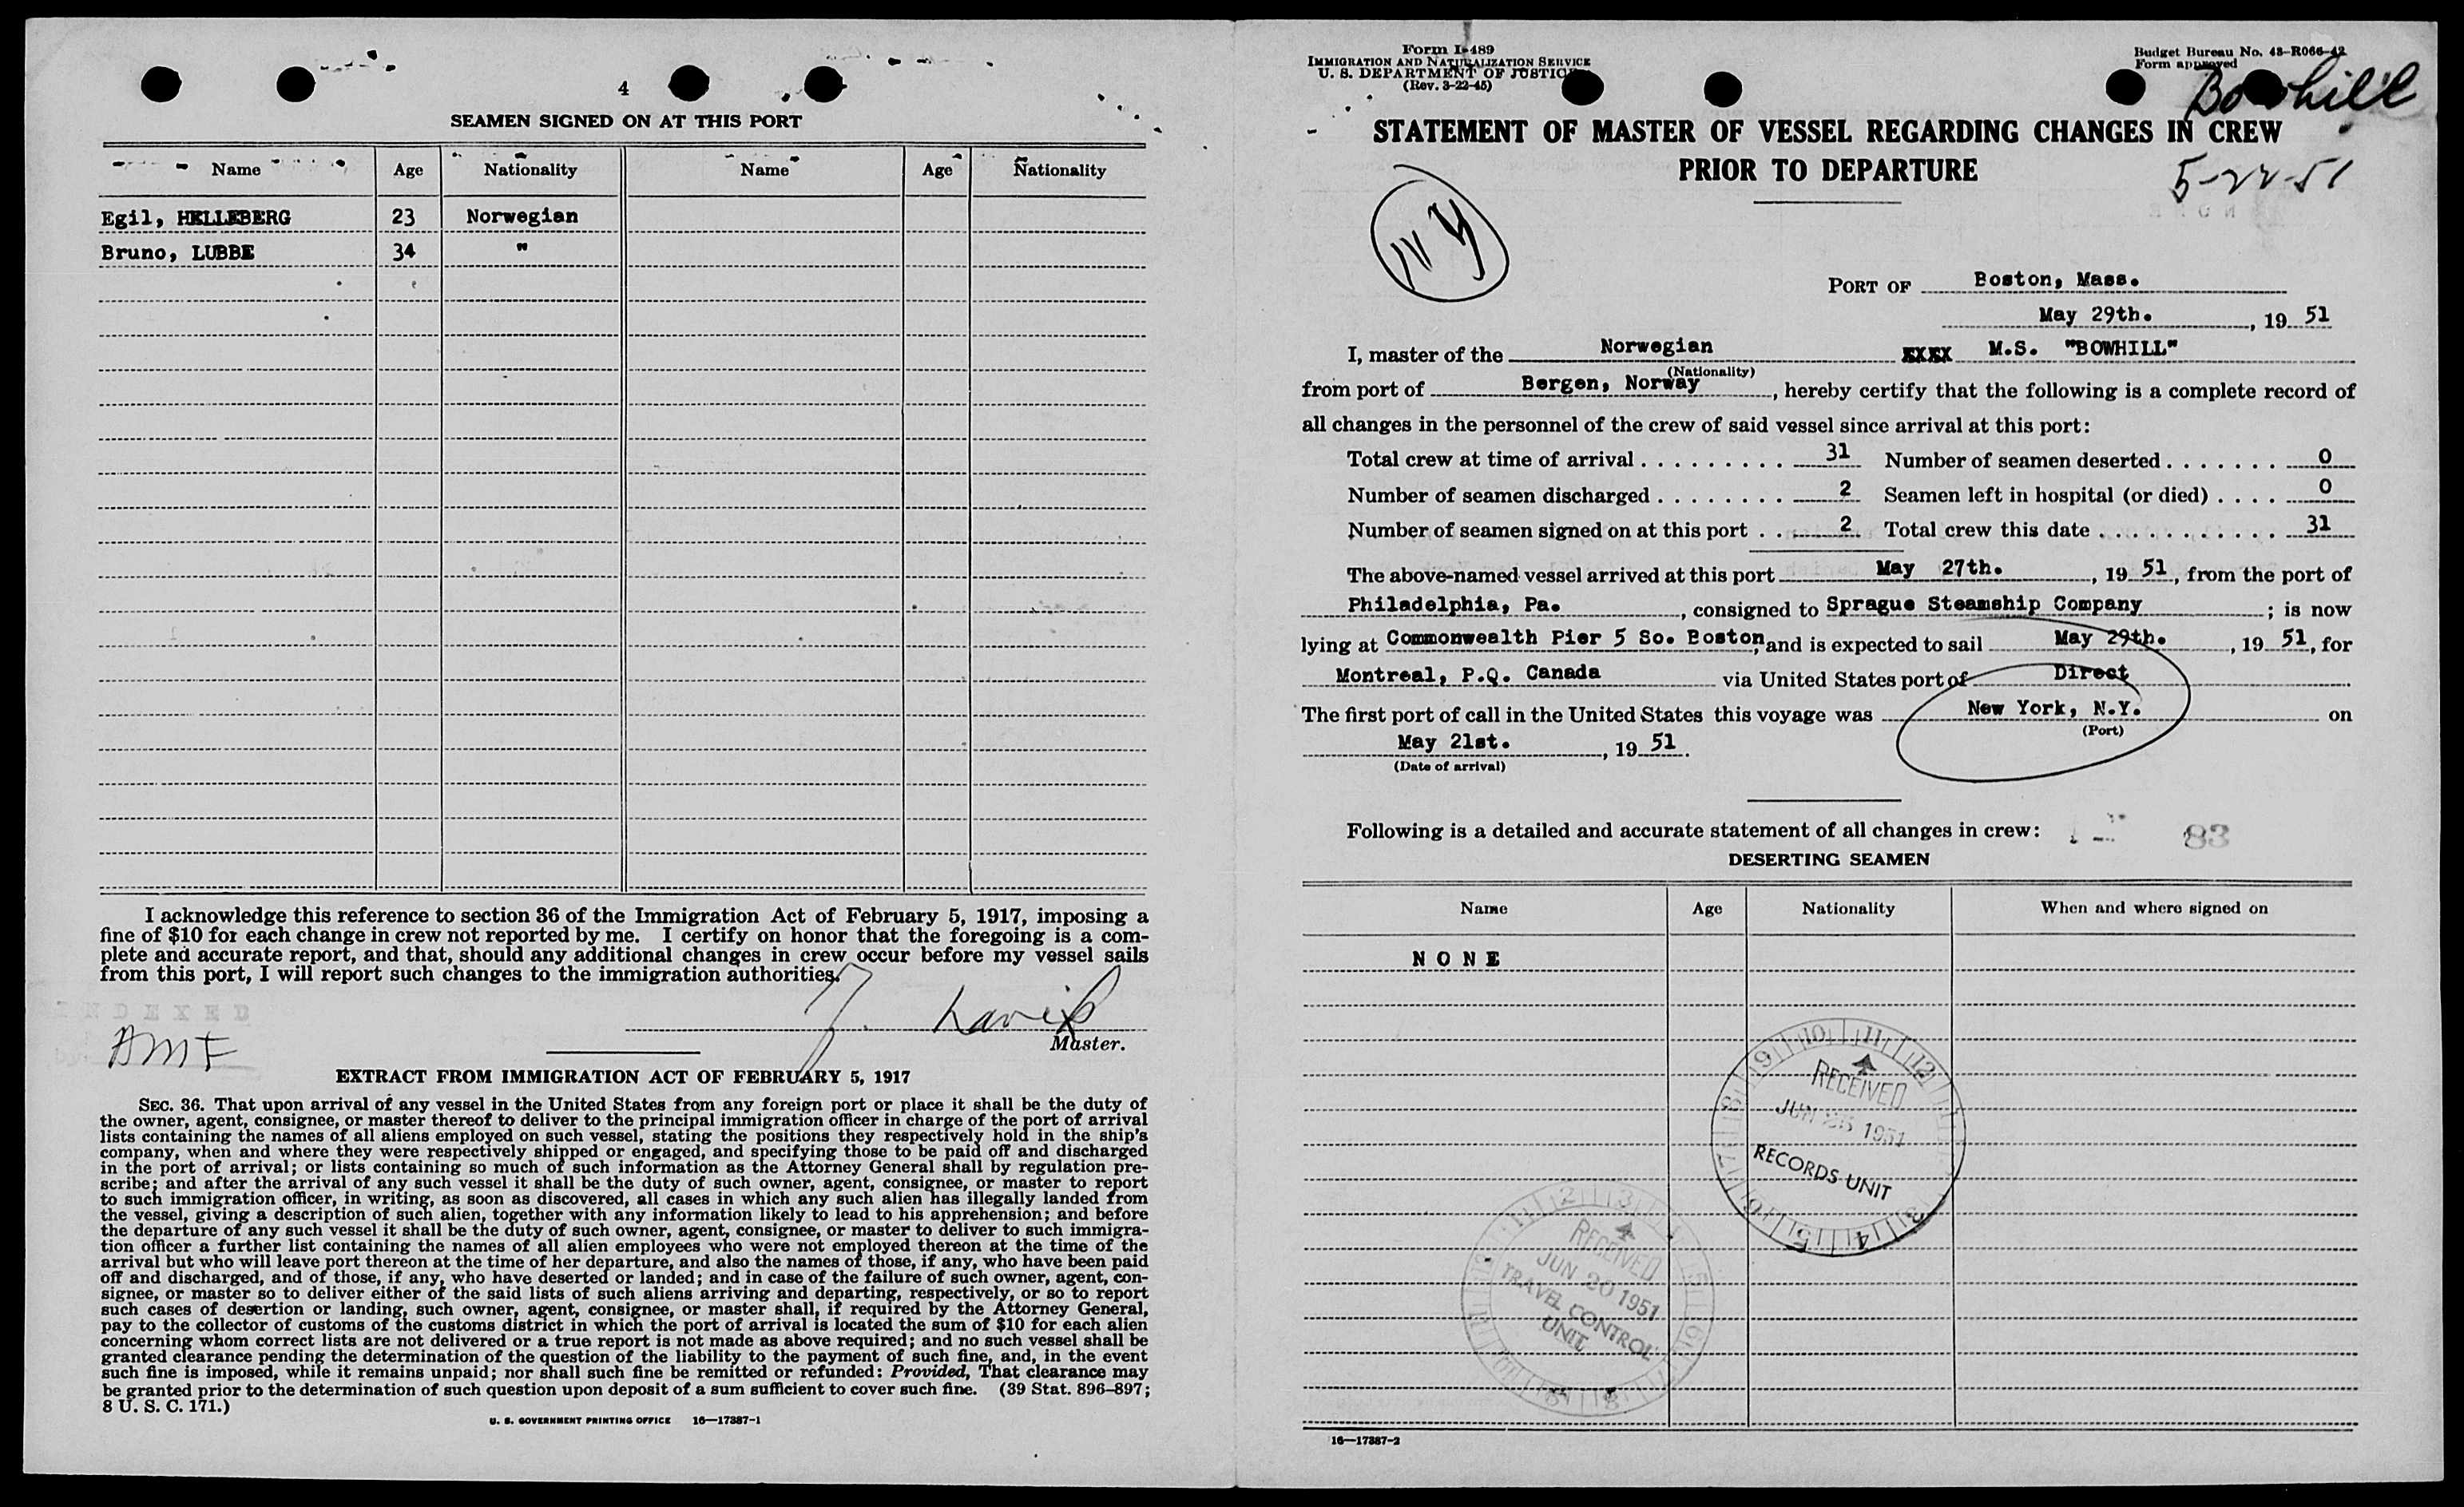 4
SEAMEN SIGNED ON AT THIS PORT
Name Age Nationality Name Age Nationality
Egil, HELLEBERG 23 Norwegian
Bruno, LUBBE 34 "
I acknowledge this reference to section 36 of the Immigration Act of February 5, 1917, imposing a
fine of $10 for each change in crew not reported by me. I certify on honor that the foregoing is a com-
plete and accurate report, and that, should any additional changes in crew occur before my vessel sails
from this port, I will report such changes to the immigration authorities.
INDEXED
AMF
Master.
EXTRACT FROM IMMIGRATION ACT OF FEBRUARY 5, 1917
SEC. 36. That upon arrival of any vessel in the United States from any foreign port or place it shall be the duty of
the owner, agent, consignee, or master thereof to deliver to the principal immigration officer in charge of the port of arrival
lists containing the names of all aliens employed on such vessel, stating the positions they respectively hold in the ship's
company, when and where they were respectively shipped or engaged, and specifying those to be paid off and discharged
in the port of arrival; or lists containing so much of such information as the Attorney General shall by regulation pre-
scribe; and after the arrival of any such vessel it shall be the duty of such owner, agent, consignee, or master to report
to such immigration officer, in writing, as soon as discovered, all cases in which any such alien has illegally landed from
the vessel, giving a description of such alien, together with any information likely to lead to his apprehension; and before
the departure of any such vessel it shall be the duty of such owner, agent, consignee, or master to deliver to such immigra-
tion officer a further list containing the names of all alien employees who were not employed thereon at the time of the
arrival but who will leave port thereon at the time of her departure, and also the names of those, if any, who have been paid
off and discharged, and of those, if any, who have deserted or landed; and in case of the failure of such owner, agent, con-
signee, or master so to deliver either of the said lists of such aliens arriving and departing, respectively, or so to report
such cases of desertion or landing, such owner, agent, consignee, or master shall, if required by the Attorney General,
pay to the collector of customs of the customs district in which the port of arrival is located the sum of $10 for each alien
concerning whom correct lists are not delivered or a true report is not made as above required; and no such vessel shall be
granted clearance pending the determination of the question of the liability to the payment of such fine, and, in the event
such fine is imposed, while it remains unpaid; nor shall such fine be remitted or refunded: Provided, That clearance may
be granted prior to the determination of such question upon deposit of a sum sufficient to cover such fine. (39 Stat. 896–897;
8 U. S. C. 171.)
U. S. GOVERNMENT PRINTING OFFICE 16—17387-1
Form I-489
IMMIGRATION AND NATURALIZATION SERVICE
U. S. DEPARTMENT OF JUSTICE
(Rev. 3-22-45)
Budget Bureau No. 43-R066-42
Form approved
Bowhill
STATEMENT OF MASTER OF VESSEL REGARDING CHANGES IN CREW
PRIOR TO DEPARTURE
5-22-51
NY
PORT OF Boston, Mass.
May 29th. , 19 51
I, master of the Norwegian XXXX M.S. "BOWHILL"
(Nationality)
from port of Bergen, Norway , hereby certify that the following is a complete record of
all changes in the personnel of the crew of said vessel since arrival at this port:
Total crew at time of arrival 31 Number of seamen deserted 0
Number of seamen discharged 2 Seamen left in hospital (or died) 0
Number of seamen signed on at this port 2 Total crew this date 31
The above-named vessel arrived at this port May 27th. , 19 51, from the port of
Philadelphia, Pa. , consigned to Sprague Steamship Company ; is now
lying at Commonwealth Pier 5 So. Boston, and is expected to sail May 29th. , 19 51, for
Montreal, P.Q. Canada via United States port of Direct
The first port of call in the United States this voyage was New York, N.Y. on
(Port)
May 21st. , 19 51.
(Date of arrival)
Following is a detailed and accurate statement of all changes in crew: 83
DESERTING SEAMEN
Name Age Nationality When and where signed on
NONE
RECEIVED
JUN 25 1951
RECORDS UNIT
RECEIVED
JUN 20 1951
TRAVEL CONTROL
UNIT
16—17387-2